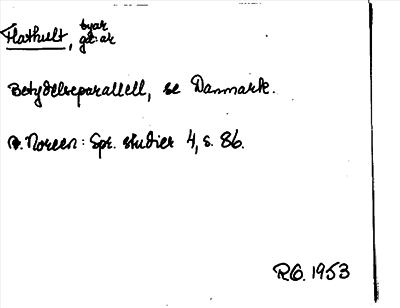 Flathult, byar
gårdar
Betydelseparallell, se Danmark.
A. Noreen: Spr. studier 4, s. 86.
R.G. 1953